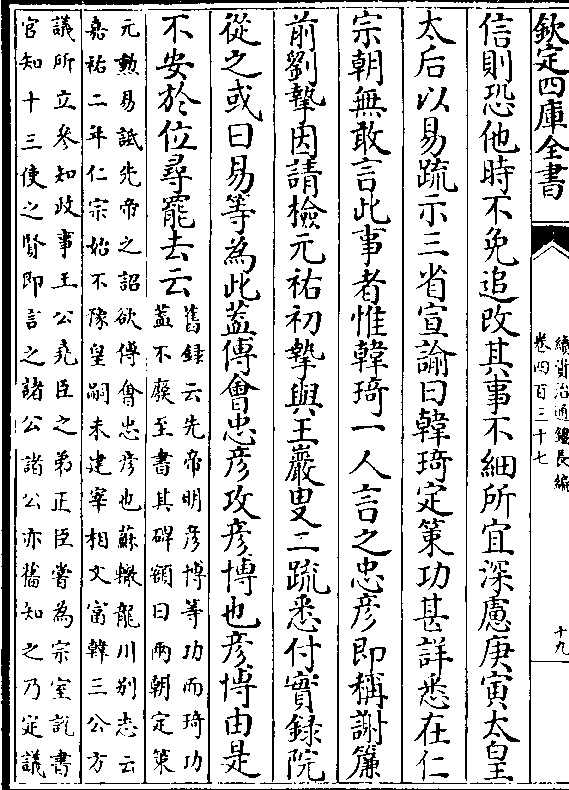 欽定四庫全書
續資治通鑑長編
卷四百三十七
十九
信則恐他時不免追改其事不細所宜深慮庚寅太皇
太后以易疏示三省宣諭曰韓琦定策功甚詳悉在仁
宗朝無敢言此事者惟韓琦一人言之忠彦即稱謝簾
前劉摯因請檢元祐初摯與王巖叟二疏悉付實録院
從之或曰易等為此蓋傅會忠彦攻彦博也彦博由是
不安於位尋罷去云
舊録云先帝明彦博等功而琦功
蓋不廢至書其碑額曰兩朝定策
元勲易詆先帝之詔欲傅會忠彦也蘇轍龍川別志云
嘉祐二年仁宗始不豫皇嗣未建宰相文富韓三公方
議所立參知政事王公堯臣之弟正臣嘗為宗室説書
官知十三使之賢即言之諸公諸公亦舊知之乃定議